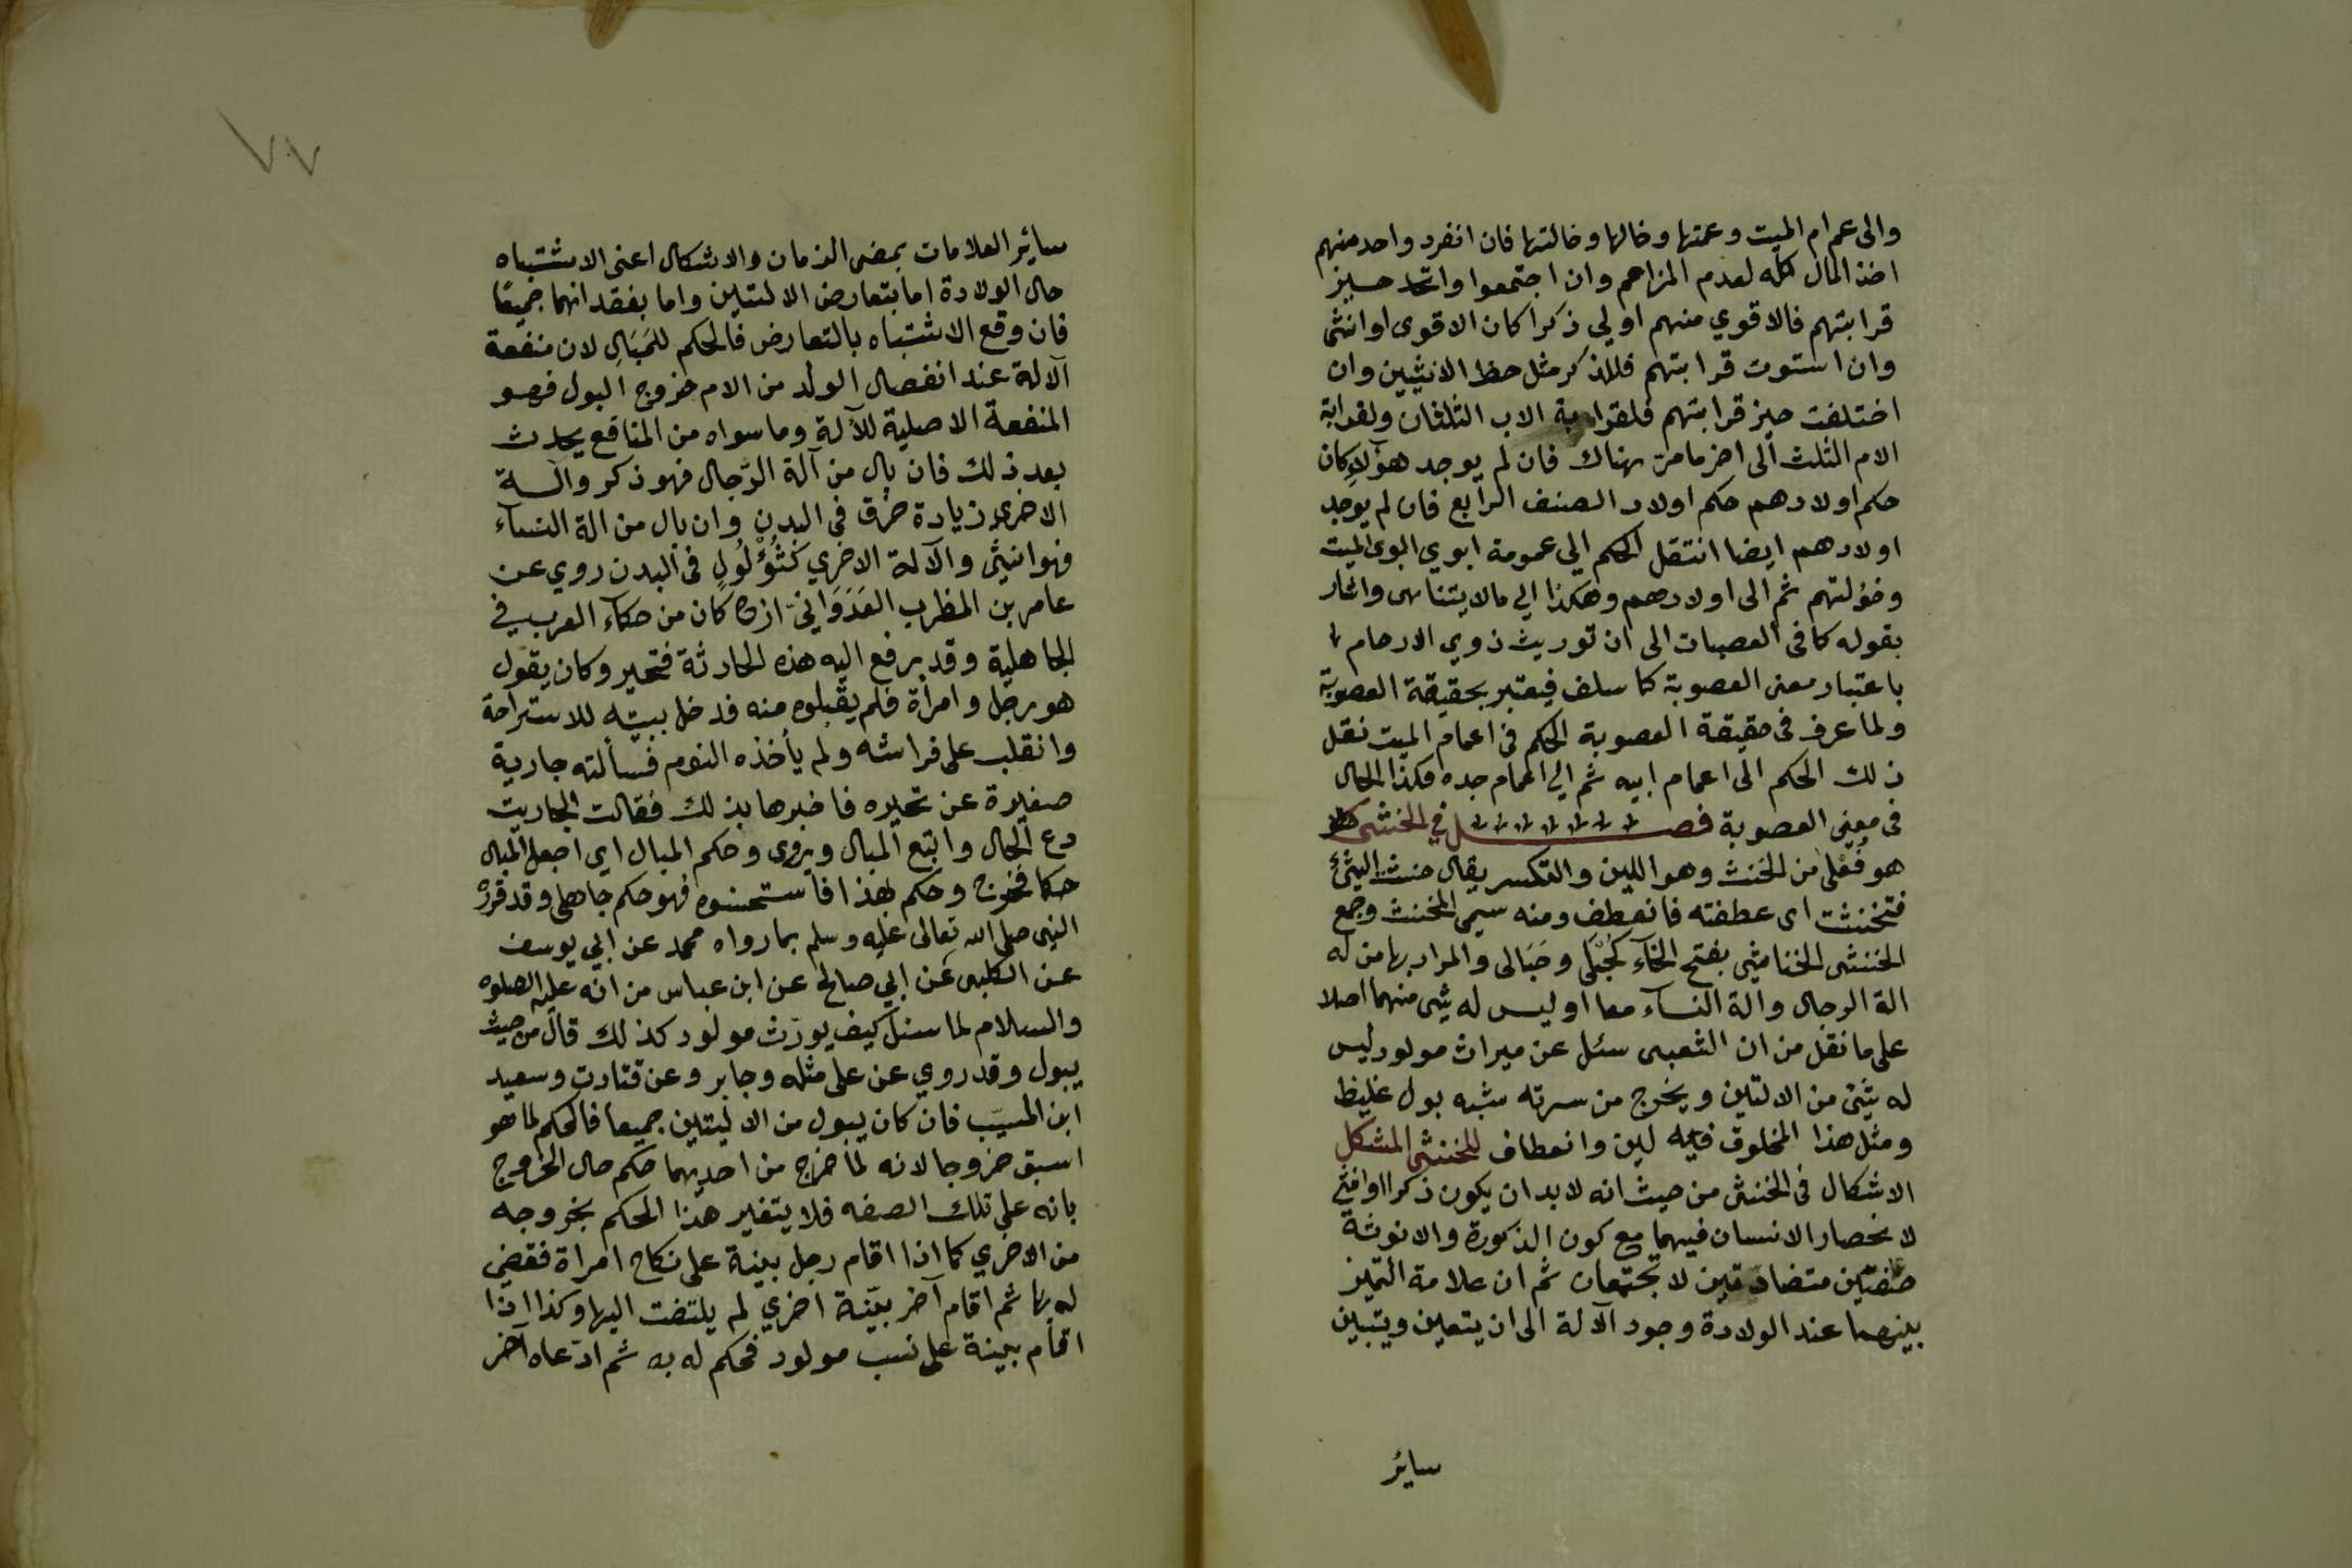 والى عم ام الميت وعمتها وخالها وخالتها فان انفرد واحد منهم
اخذ المال كله لعدم المزاحم وان اجتمعوا واتحد حيز
قرابتهم فالاقوي منهم اولي ذكرا كان الاقوى او انثى
وان استوت قرابتهم فللذكر مثل حظ الانثيين وان
اختلفت حيز قرابتهم فلقرابة الاب الثلثان ولقرابة
الام الثلث الى اخر ما مر هناك فان لم يوجد هؤلاء كان
حكم اولادهم حكم اولاد الصنف الرابع فان لم يوجد
اولادهم ايضا انتقل الحكم الي عمومة ابوي ابوى الميت
وخؤلتهم ثم الى اولادهم وهكذا الي مالا يتناهى واشار
بقوله كما فى العصبات الى ان توريث ذوي الارحام
باعتبار معنى العصوبة كما سلف فيعتبر بحقيقة العصوبة
ولما عرف فى حقيقة العصوبة الحكم فى اعمام الميت نقل
ذلك الحكم الى اعمام ابيه ثم الي اعمام جده فكذا الحال
فى معنى العصوبة فصل في الخنثى
هو فُعْلى من الخنث وهو اللين والتكسر يقال خنث الشئ
فتخنثت اى عطفته فانعطف ومنه سمى المخنث وجمع
الخنثى الخناثى بفتح الخآء كحُبْلَى وحَبَالى والمراد بها من له
الة الرجال والة النسآء معا او ليس له شى منهما اصلا
على ما نقل من ان الشعبى سئل عن ميراث مولود ليس
له شئ من الالتين ويخرج من سرته شبه بول غليظ
ومثل هذا المخلوق فيه لين وانعطاف للخنثى المشكل
الاشكال فى الخنثى من حيث انه لا بد ان يكون ذكرا او انثى
لانحصار الانسان فيهما مع كون الذكورة والانوثة
صفتين متضادتين لا تجتمعان ثم ان علامة التميز
بينهما عند الولادة وجود الآلة الى ان يتعين ويتبين
ساير
٧٠٧
سائر العلامات بمضى الزمان والاشكال اعنى الاشتباه
حال الولادة اما بتعارض الالتين واما بفقدانهما جميعا
فان وقع الاشتباه بالتعارض فالحكم للمَبَالِ لان منفعة
آلالة عند انفصال الولد من الام خروج البول فهو
المنفعة الاصلية للآلة وما سواه من المنافع يحدث
بعد ذلك فان بال من آلة الرّجال فهو ذكر والة
الاخرى زيادة خرق فى البدن وان بال من الة النسآء
فهو انثى والآلة الاخري كَثُؤْلُولٍ فى البدن روي عن
عامر بن المظرب العَدَوَانيّ انه كان من حكآء العرب في
الجاهلية وقد رفع اليه هذه الحادثة فتحير وكان يقول
هو رجل وامرأة فلم يقبلوه منه فدخل بيته للاستراحة
وانقلب على فراشه ولم يأخذه النوم فسألته جارية
صغيرة عن تحيره فاخبرها بذلك فقالت الجاريت
دع الحال واتبع المبال ويروى وحكم المبال اى اجعل المبال
حكما فخرج وحكم بهذا فاستحسنوه فهو حكم جاهلي وقد قرره
النبى صلى الله تعالى عليه وسلم بما رواه محمد عن ابي يوسف
عن الكلبى عن ابي صالح عن ابن عباس من انه عليه الصلوه
والسلام لما سئل كيف يورّث مولود كذلك قال من حيث
يبول وقد روي عن على مثله وجابر وعن قتادت وسعيد
ابن المسيّب فان كان يبول من الاليتين جميعا فالحكم لما هو
اسبق خروجا لانه لما خرج من احديهما حكم حال الخروج
بانه على تلك الصفه فلا يتغير هذا الحكم بخروجه
من الاخري كما اذا اقام رجل بينة على نكاح امراة فقضي
له بها ثم اقام آخر بيّنة اخري لم يلتفت اليها وكذا اذا
اقام بينة على نسب مولود فحكم له به ثم ادّعاه آخر